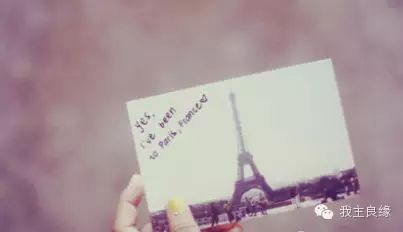 yes,
i've been
to Paris, France♡
我主良缘